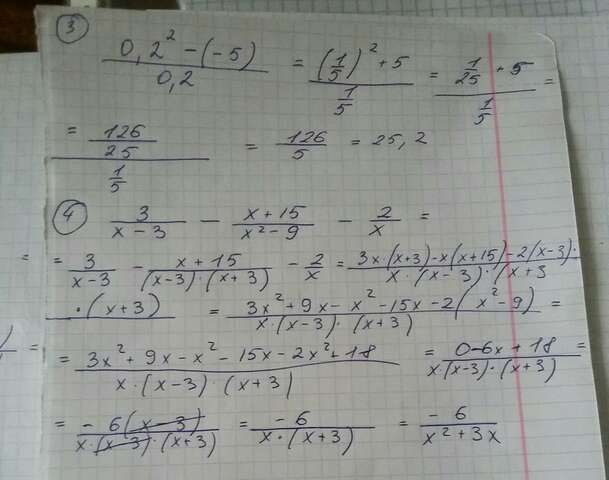 ③
(0,2² - (-5))/(0,2) = ((1/5)² + 5)/(1/5) = (1/25 + 5)/(1/5) =
= (126/25)/(1/5) = 126/5 = 25,2
④ 3/(x-3) - (x+15)/(x²-9) - 2/x =
= 3/(x-3) - (x+15)/((x-3)·(x+3)) - 2/x = (3x·(x+3)-x(x+15)-2(x-3)·)/(x·(x-3)·(x+3
·(x+3) = (3x²+9x-x²-15x-2(x²-9))/(x·(x-3)·(x+3)) =
= (3x²+9x-x²-15x-2x²+18)/(x·(x-3)·(x+3)) = (0-6x+18)/(x·(x-3)·(x+3)) =
= (-6(x-3))/(x·(x-3)·(x+3)) = (-6)/(x·(x+3)) = (-6)/(x²+3x)